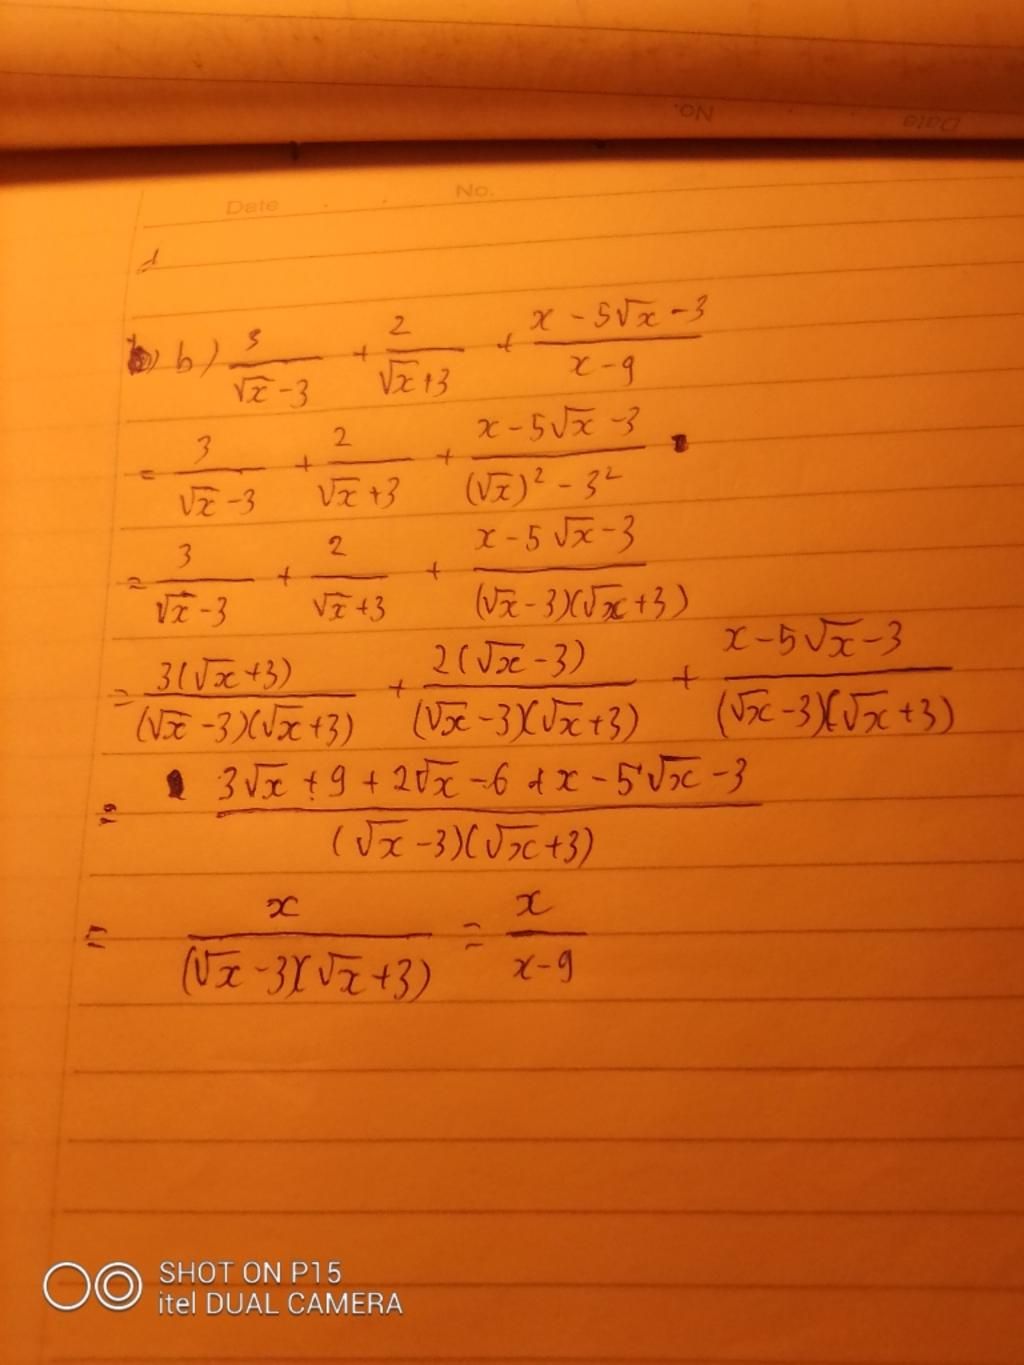 Date No.
Date No.
b) 3/(√x - 3) + 2/(√x + 3) + (x - 5√x - 3)/(x - 9)
= 3/(√x - 3) + 2/(√x + 3) + (x - 5√x - 3)/((√x)² - 3²)
= 3/(√x - 3) + 2/(√x + 3) + (x - 5√x - 3)/((√x - 3)(√x + 3))
= 3(√x + 3)/((√x - 3)(√x + 3)) + 2(√x - 3)/((√x - 3)(√x + 3)) + (x - 5√x - 3)/((√x - 3)(√x + 3))
= (3√x + 9 + 2√x - 6 + x - 5√x - 3)/((√x - 3)(√x + 3))
= x/((√x - 3)(√x + 3)) = x/(x - 9)
SHOT ON P15
itel DUAL CAMERA